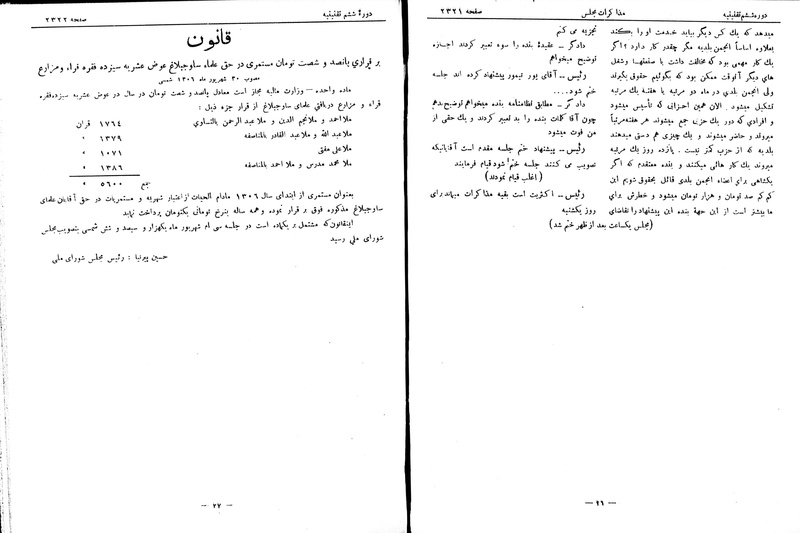 دوره ششم تقنینیه
مذاکرات مجلس
صفحه ۲۳۲۱
میدهد که یك کس دیگر بیاید خدمت او را بکنند
بعلاوه اساساً انجمن بلدیه مگر چقدر کار دارد؟ اگر
یك کار مهمی بود که مخالفت داشت با صنعتها و شغل
های دیگر آنوقت ممکن بود که بگوئیم حقوق بگیرند
ولی انجمن بلدی در ماه دو مرتبه یا هفتهٔ یك مرتبه
تشکیل میشود . الان همین احزابی که تأسیس میشود
و افرادی که دور یك حزبی جمع میشوند هر هفته مرتباً
میروند و حاضر میشوند و یك چیزی هم دستی میدهند
بلدیه که از حزب کمتر نیست . پانزده روز یك مرتبه
میروند یك کار هائی میکنند و بنده معتقدم که اگر
یکشاهی برای اعضاء انجمن بلدی قائل بحقوق شویم این
کم کم صد تومان و هزار تومان میشود و خطرش برای
ما بیشتر است از این جهة بنده این پیشنهاد را تقاضای
تجزیه می کنم
دادگر — عقیدهٔ بنده را سوه تعبیر کردند اجازه
توضیح میخواهم
رئیس — آقای پور تیمور پیشنهاد کرده اند جلسه
ختم شود....
دادگر — مطابق نظامنامه بنده میخواهم توضیح بدهم
چون آقا کلمات بنده را بد تعبیر کردند و یك حقی از
من فوت میشود
رئیس — پیشنهاد ختم جلسه مقدم است آقایانیکه
تصویب می کنند جلسه ختم شود قیام فرمایند
(اغلب قیام نمودند)
رئیس — اکثریت است بقیه مذاکرات میماند برای
روز یکشنبه
(مجلس یکساعت بعد از ظهر ختم شد)
— ۲۶ —
دورهٔ ششم تقنینیه
صفحه ۲۳۲۲
قانون
برقراری پانصد و شصت تومان مستمری در حق علماء ساوجبلاغ عوض عشریه سیزده فقره قراء و مزارع
مصوب ۳۰ شهریور ماه ۱۳۰۶ شمسی
ماده واحده — وزارت مالیه مجاز است معادل پانصد و شصت تومان در سال در عوض عشریه سیزده فقره
قراء و مزارع دریافتی علمای ساوجبلاغ از قرار جزء ذیل :
ملا احمد و ملا نجم الدین و ملا عبد الرحمن بالتساوی ۱۷۶۴ قران
ملا عبد الله و ملا عبد القادر بالمناصفه ۱۳۷۹ »
ملا علی مفتی ۱۰۷۱ »
ملا محمد مدرس و ملا احمد بالمناصفه ۱۳۸۶ »
جمع ۵۶۰۰ »
بعنوان مستمری از ابتدای سال ۱۳۰۶ مادام الحیات از اعتبار شهریه و مستمریات در حق آقایان علمای
ساوجبلاغ مذکوره فوق برقرار نموده و همه ساله بنرخ تومانی یکتومان پرداخت نماید
اینقانون که مشتمل بر یکماده است در جلسه سی ام شهریور ماه یکهزار و سیصد و شش شمسی بتصویب مجلس
شورای ملی رسید
حسین پیرنیا : رئیس مجلس شورای ملی
— ۲۷ —